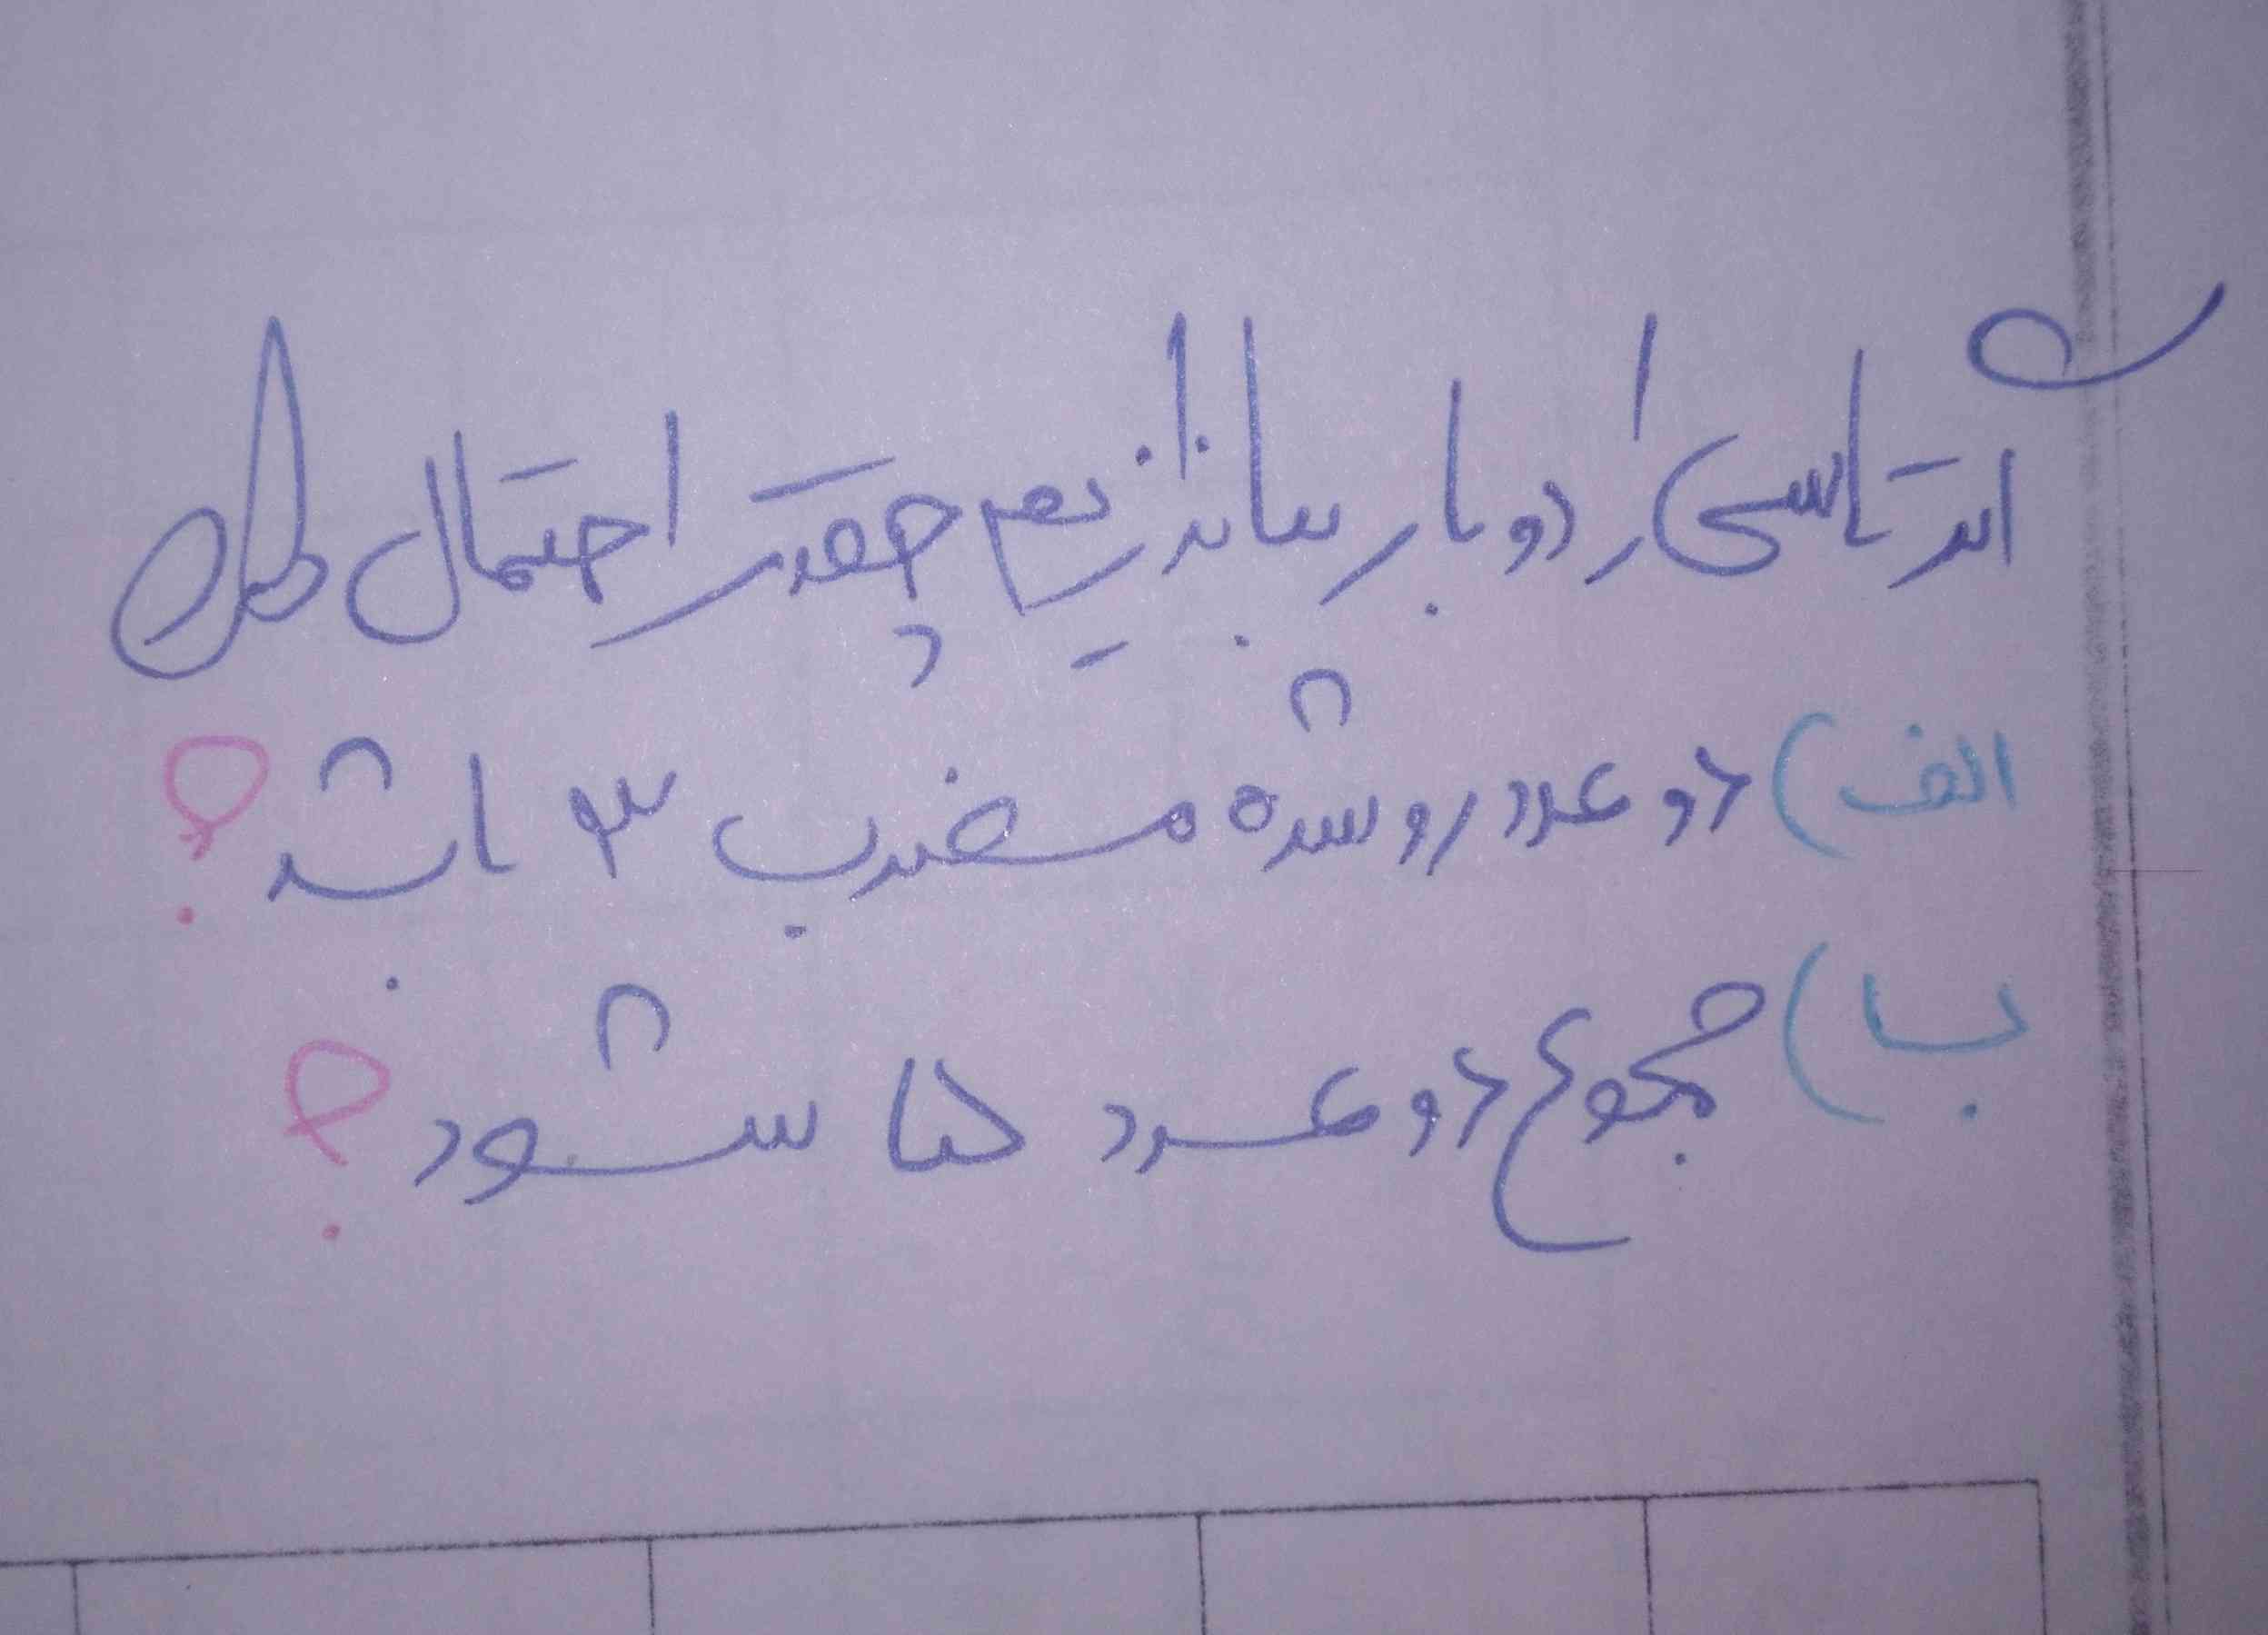 اگر تاسی را دو بار بیاندازیم چقدر احتمال دارد
الف) دو عدد رو شده مضرب ۳ باشد؟
ب) مجموع دو عدد ۵ شود؟